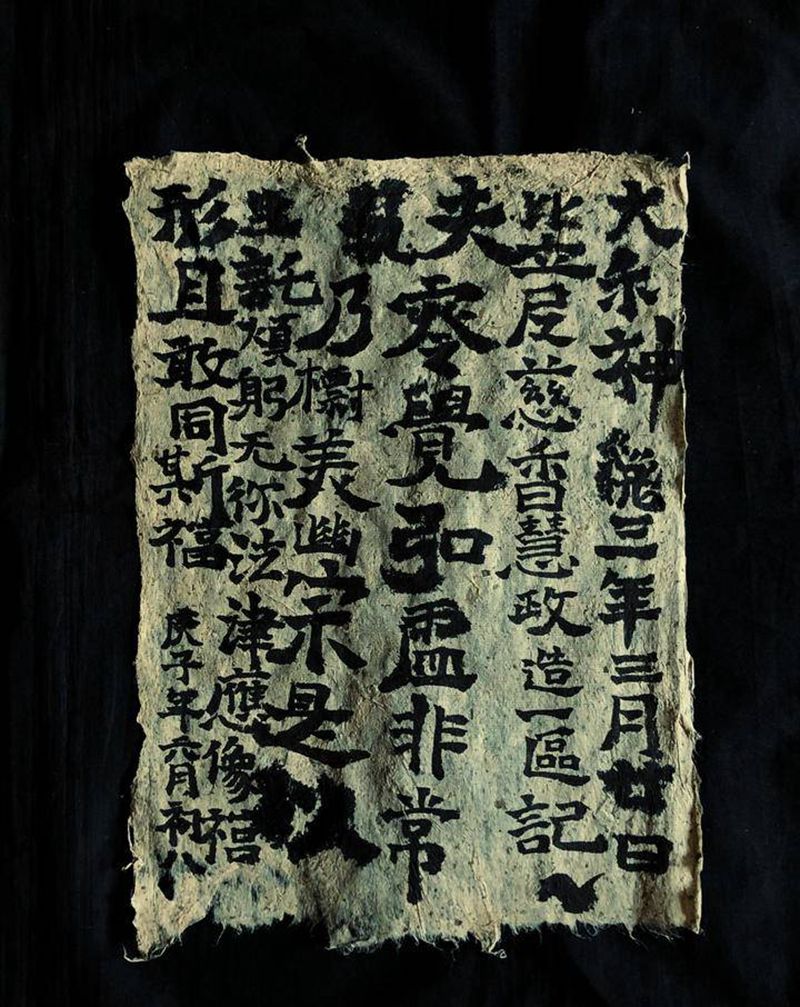 大尒神三年三月廿日
比丘尼慈香慧政造一區記
夫零覺弘虛非常
乃標美幽宗是以
託煩躬无弥法津應像福
形且敢同斯福 庚子年六月初八